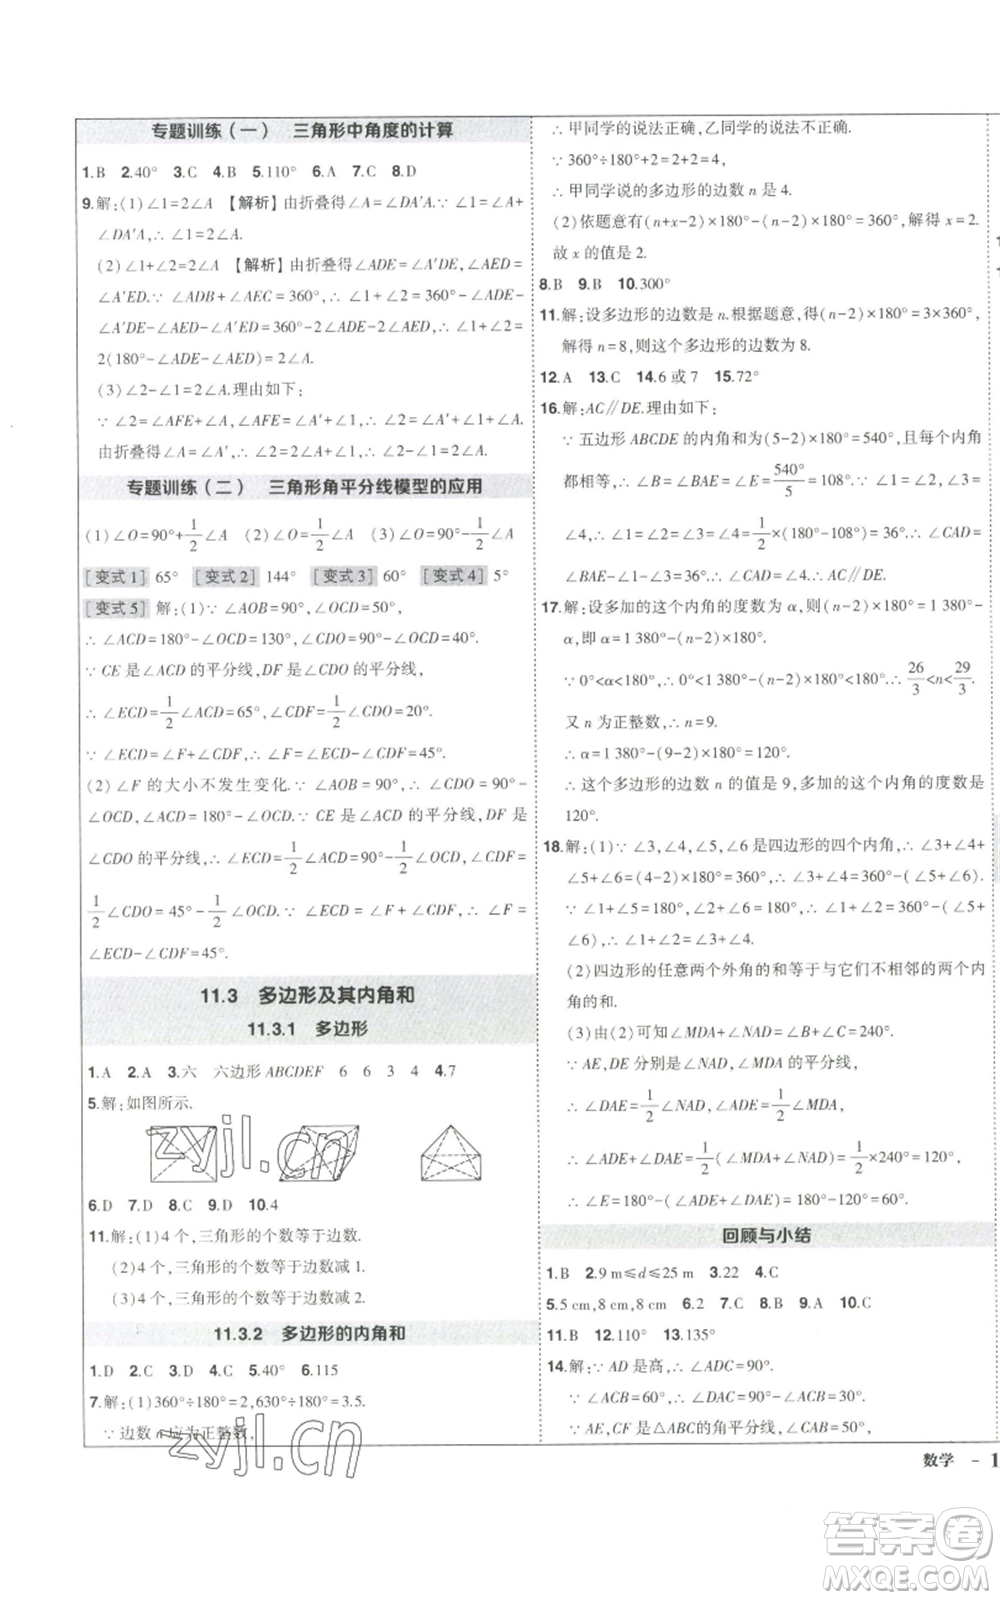 专题训练（一）　三角形中角度的计算
1.B　2.40°　3.C　4.B　5.110°　6.A　7.C　8.D
9.解:(1)∠1=2∠A　【解析】由折叠得∠A=∠DA′A.∵∠1=∠A+
∠DA′A,∴∠1=2∠A.
(2)∠1+∠2=2∠A　【解析】由折叠得∠ADE=∠A′DE,∠AED=
∠A′ED.∵∠ADB+∠AEC=360°,∴∠1+∠2=360°-∠ADE-
∠A′DE-∠A′ED-∠AED=360°-2∠ADE-2∠AED=
2(180°-∠ADE-∠AED)=2∠A.
(3)∠2-∠1=2∠A.理由如下:
∵∠2=∠AFE+∠A,∠AFE=∠A′+∠1,∴∠2=∠A′+∠A+∠1.
由折叠得∠A=∠A′,∴∠2=2∠A+∠1,∴∠2-∠1=2∠A.
专题训练（二）　三角形角平分线模型的应用
(1)∠O=90°+1/2∠A　(2)∠O=1/2∠A　(3)∠O=90°-1/2∠A
[变式1] 65°　[变式2] 144°　[变式3] 60°　[变式4] 5°
[变式5] 解:(1)∵∠AOB=90°,∠OCD=50°,
∴∠ACD=180°-∠OCD=130°,∠CDO=90°-∠OCD=40°.
∵CE是∠ACD的平分线,DF是∠CDO的平分线,
∴∠ECD=1/2∠ACD=65°,∠CDF=1/2∠CDO=20°.
∵∠ECD=∠F+∠CDF,∴∠F=∠ECD-∠CDF=45°.
(2)∠F的大小不发生变化.∵∠AOB=90°,∴∠CDO=90°-
∠OCD,∠ACD=180°-∠OCD.∵CE是∠ACD的平分线,DF是
∠CDO的平分线,∴∠ECD=1/2∠ACD=90°-1/2∠OCD,∠CDF=
1/2∠CDO=45°-1/2∠OCD.∵∠ECD=∠F+∠CDF,∴∠F=
∠ECD-∠CDF=45°.
11.3　多边形及其内角和
11.3.1　多边形
1.A　2.A　3.六　六边形ABCDEF　6　6　3　4.7
5.解:如图所示.
zyjl.cn
6.D　7.D　8.C　9.D　10.4
11.解:(1)4个,三角形的个数等于边数.
(2)4个,三角形的个数等于边数减1.
(3)4个,三角形的个数等于边数减2.
11.3.2　多边形的内角和
1.D　2.C　3.D　4.C　5.40°　6.115
7.解:(1)360°÷180°=2,630°÷180°=3.5.
∵边数n应为正整数,
zyjl.cn
∴甲同学的说法正确,乙同学的说法不正确.
∵360°÷180°+2=2+2=4,
∴甲同学说的多边形的边数n是4.
(2)依题意有(n+x-2)×180°-(n-2)×180°=360°,解得x=2.
故x的值是2.
8.B　9.B　10.300°
11.解:设多边形的边数是n.根据题意,得(n-2)×180°=3×360°,
解得n=8,则这个多边形的边数为8.
12.A　13.C　14.6或7　15.72°
16.解:AC∥DE.理由如下:
∵五边形ABCDE的内角和为(5-2)×180°=540°,且每个内角
都相等,∴∠B=∠BAE=∠E=540°/5=108°.∵∠1=∠2,∠3=
∠4,∴∠1=∠2=∠3=∠4=1/2×(180°-108°)=36°,∴∠CAD=
∠BAE-∠1-∠3=36°,∴∠CAD=∠4,∴AC∥DE.
17.解:设多加的这个内角的度数为α,则(n-2)×180°=1 380°-
α,即α=1 380°-(n-2)×180°.
∵0°<α<180°,∴0°<1 380°-(n-2)×180°<180°∴26/3<n<29/3.
又n为正整数,∴n=9.
∴α=1 380°-(9-2)×180°=120°.
∴这个多边形的边数n的值是9,多加的这个内角的度数是
120°.
18.解:(1)∵∠3,∠4,∠5,∠6是四边形的四个内角,∴∠3+∠4+
∠5+∠6=(4-2)×180°=360°,∴∠3+∠4=360°-(∠5+∠6).
∵∠1+∠5=180°,∠2+∠6=180°,∴∠1+∠2=360°-(∠5+
∠6),∴∠1+∠2=∠3+∠4.
(2)四边形的任意两个外角的和等于与它们不相邻的两个内
角的和.
(3)由(2)可知∠MDA+∠NAD=∠B+∠C=240°.
∵AE,DE分别是∠NAD,∠MDA的平分线,
∴∠DAE=1/2∠NAD,∠ADE=1/2∠MDA,
∴∠ADE+∠DAE=1/2(∠MDA+∠NAD)=1/2×240°=120°,
∴∠E=180°-(∠ADE+∠DAE)=180°-120°=60°.
回顾与小结
1.B　2.9 m≤d≤25 m　3.22　4.C
5.5 cm,8 cm,8 cm　6.2　7.C　8.B　9.A　10.C
11.B　12.110°　13.135°
14.解:∵AD是高,∴∠ADC=90°.
∵∠ACB=60°,∴∠DAC=90°-∠ACB=30°.
∵AE,CF是△ABC的角平分线,∠CAB=50°,
数学　-　1
答案卷
MXQE.COM